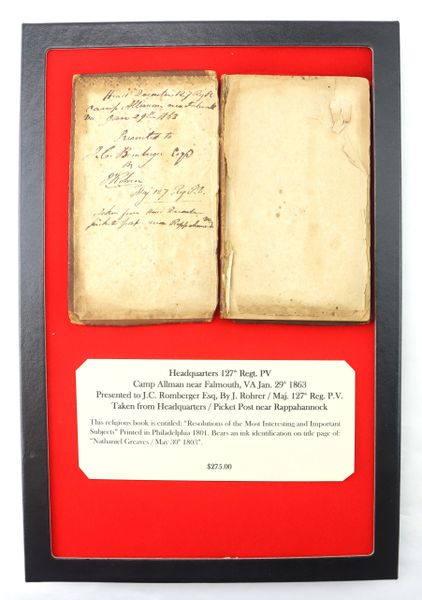 Head Quarters 127 Regt
Camp Allman near
Va Jan 29th 1863
Presented to
J.C. Bomberger Esqr
By
J Rohrer
Maj 127 Reg P.V.
Taken from Head Quarters
picket post near
Headquarters 127" Regt. PV
Camp Allman near Falmouth, VA Jan. 29" 1863
Presented to J.C. Romberger Esq, By J. Rohrer / Maj. 127" Reg. P.V.
Taken from Headquarters / Picket Post near Rappahannock
This religious book is entitled: "Resolutions of the Most Interesting and Important
Subjects" Printed in Philadelphia 1801. Bears an ink identification on title page of:
"Nathaniel Greaves / May 30" 1803".
$275.00